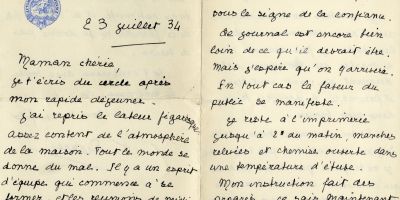 23 juillet 34
Maman chérie,
je t'écris du cercle après
mon rapide déjeuner.
J'ai repris le labeur figaresque
assez content de l'atmosphère
de la maison. Tout le monde se
donne du mal. Il y a un esprit
d'équipe qui commence à se
former, et les réunions de midi
sous le signe de la confiance.
Ce journal est encore bien
loin de ce qu'il devrait être.
Mais j'espère qu'on y arrivera.
En tout cas la faveur du
public se manifeste.
Je reste à l'imprimerie
jusqu'à 2h du matin, manches
relevées et chemise ouverte dans
une température d'étuve.
Mon instruction fait des
progrès. Je sais maintenant